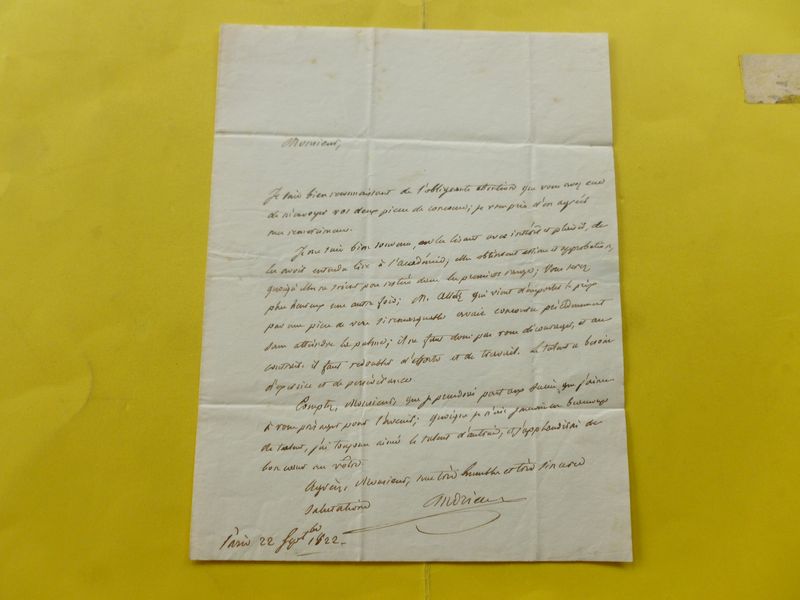 Monsieur,
Je suis bien reconnaissant de l'obligeante attention que vous avez eue
de m'envoyer vos deux pieces de concours; je vous prie d'en agréer
mes remerciemens.
Je me suis bien souvenu, en les lisant avec intérêt et plaisir, de
les avoir entendu lire à l'académie; elles obtinrent estime et approbation,
quoiqu'elles ne soient pas restées dans les premiers rangs; Vous serez
plus heureux une autre fois; M. qui vient d'emporter le prix
par une piece de vers si remarquable avait concouru précédemment
sans atteindre la palme; il ne faut donc pas vous décourager, et au
contraire il faut redoubler d'efforts et de travail. Le talent a besoin
d'exercice et de persévérance
Comptez, Monsieur, que je prendrai part aux succès que j'aime
à vous présager pour l'avenir; quoique je n'aie jamais eu beaucoup
de talent, j'ai toujours aimé le talent d'autrui, et j'applaudirai de
bon cœur au vôtre.
Agréez, Monsieur, mes très humbles et très sinceres
salutations
Andrieux
Paris 22 Sept.bre 1822.